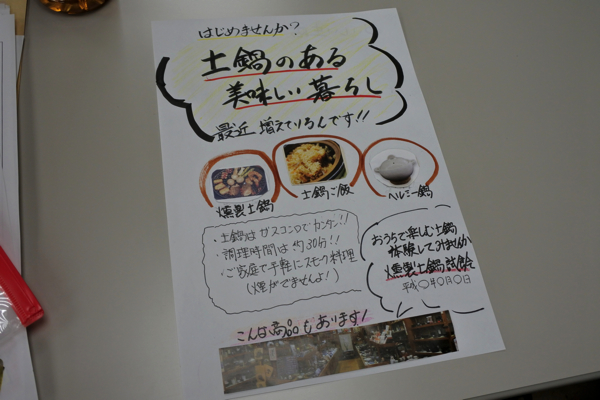 はじめませんか?
土鍋のある
美味しい暮らし
最近 増えているんです!!
燻製土鍋
土鍋ご飯
ヘルシー鍋
・土鍋はガスコンロでカンタン!!
・調理時間は約30分!!
・ご家庭で手軽にスモーク料理
(煙がでませんよ!)
おうちで楽しむ土鍋
体験してみませんか
燻製土鍋試食会
平成〇年〇月〇日
こんな商品もあります!